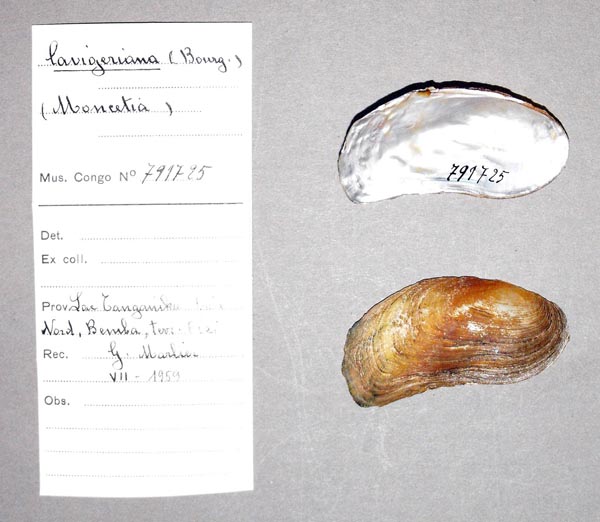 lavigeriana (Bourg.)
(Moncetia)
Mus. Congo No 791725
Det.
Ex coll.
Prov. Lac Tanganika
Nord, Bemba,
Rec. G. Marlier
VII - 1959
Obs.
791725